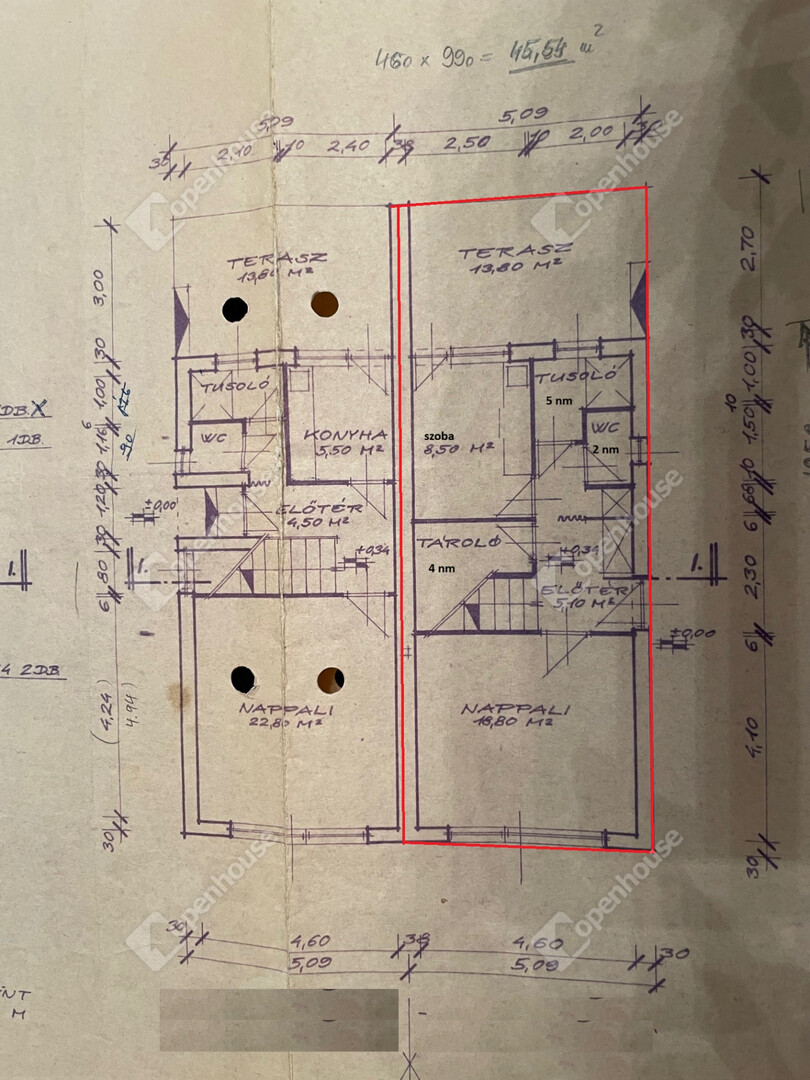 460 x 990 = 45,54 m²
5,09 5,09
30 2,10 10 2,40 38 2,50 10 2,00 30
TERASZ
13,80 M²
TERASZ
13,80 M²
3,00
2,70
30
1,00
1,16
6
90
1,20
30
30
80
6
(4,24)
4.94)
30
30
1,00
10
1,50
10
6
2,30
6
4,10
30
DB.X
1DB.
4 2DB.
TUSOLÓ
WC
KONYHA
5,50 M²
ELŐTÉR
4,50 M²
±0,00
+0,34
NAPPALI
22,80 M²
TUSOLÓ
5 nm
WC
2 nm
szoba
8,50 M²
TÁROLÓ
4 nm
+0,34
ELŐTÉR
5,10 M²
±0,00
NAPPALI
18,80 M²
1. 1. 1.
30 4,60 38 4,60 30
5,09 5,09
INT
M
openhouse
openhouse
openhouse
openhouse
openhouse
openhouse